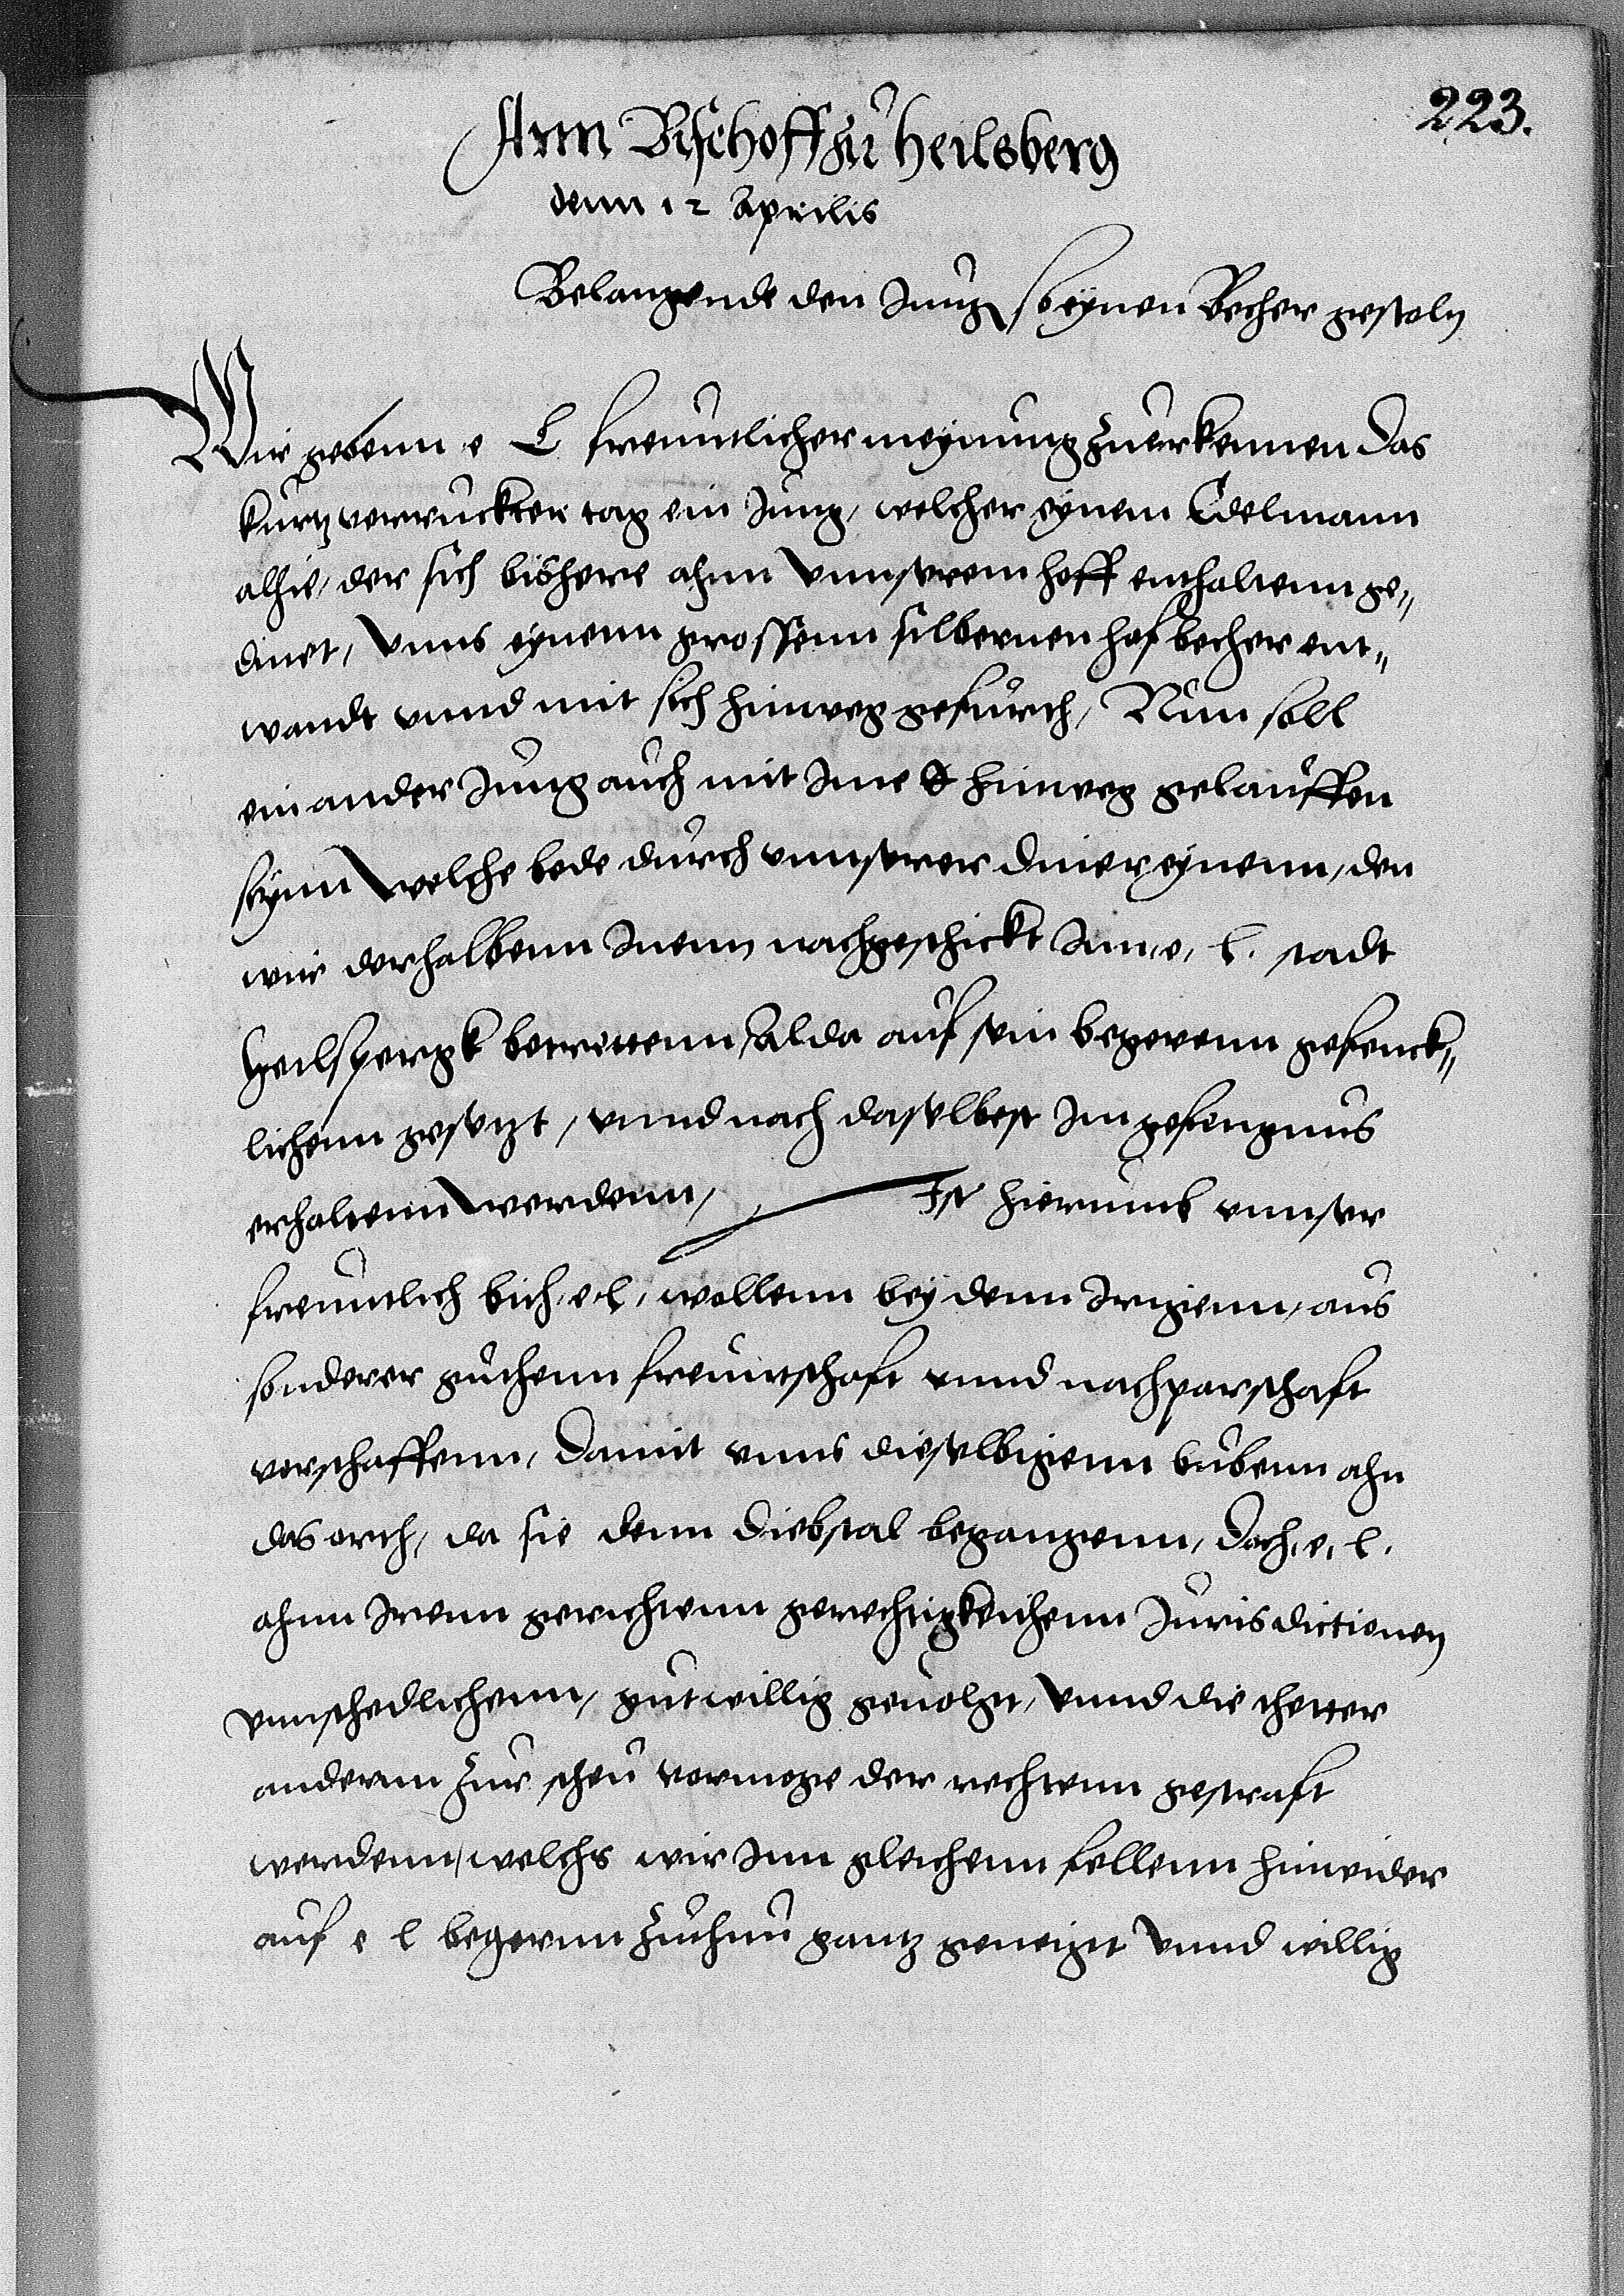 223.
Ann Bischoff zu heilsberg
denn 12 Aprilis
Belangende den Jung so eynen Becher gestoln
Wir gebenn e L freuntlicher meynung zuerkennen das
kurtz verruckter tag ein Jung, welcher eynem Edelmann
alhie, der sich bishere ahnn vnnserem hoff enthaltenn ge„
dinet, vnns eynenn grossenn silbernen hof becher ent„
wandt vnnd mit sich hinweg gefurth, Nun soll
ein ander Jung auch mit Ime hinweg gelauffen
seynn welche bede durch vnnserer diner eynenn, den
wir derhalbenn Inenn nachgeschickt Inn, e, l. stadt
Heilspergk betrettenn, alda auf sein begerenn gefenck„
lichenn gesetzt, vnnd noch daselbest Im gefengnus
erhaltenn werdenn, Ist hierumb vnnser
freuntlich bith, e l, wollenn bey denn Irigenn, aus
sonderer guthenn freuntschaft vnnd nachparschaft
verschaffenn, damit vnns dieselbigenn bubenn ahn
das orth, da sie denn diebstal begangenn, doch, e, l.
ahnn Irenn gerichtenn gerechtigkeithenn Jurisdictionen
vnnschedlichenn, gutwillig geuolgt, vnnd die thetter
andernn zur scheu vormoge der rechtenn gestraft
werdenn, welchs wir Inn gleichenn fellenn hinwider
auf e l begernn zuthun gantz geneigt vnnd willig